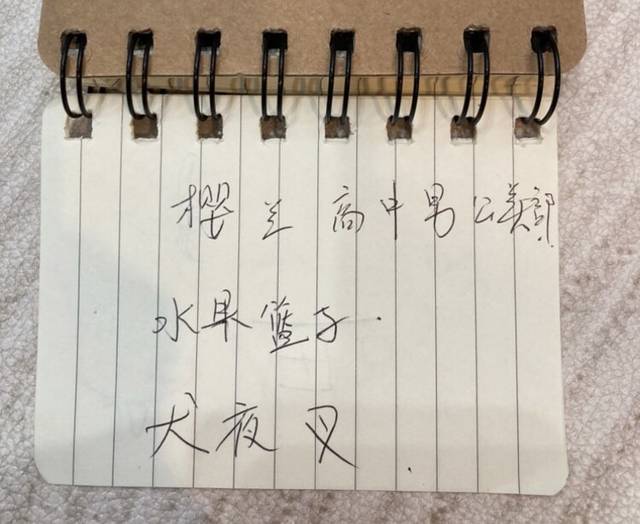 樱兰高中男公关部.
水果篮子.
犬夜叉.